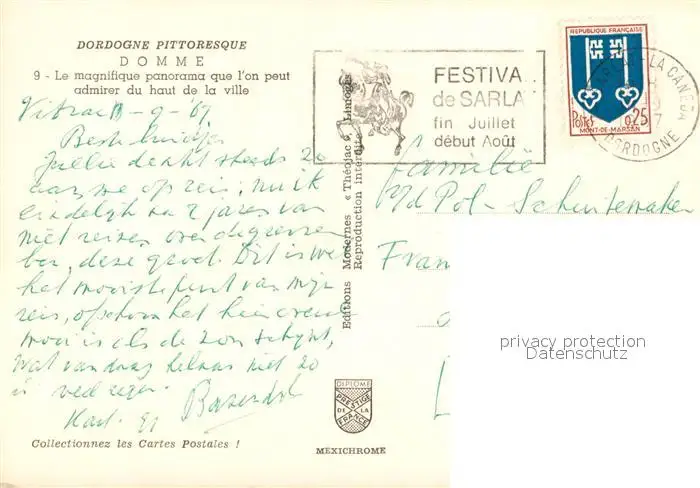 DORDOGNE PITTORESQUE
DOMME
9 - Le magnifique panorama que l'on peut
admirer du haut de la ville
-9-'67
Jullie denkt steeds zo
op reis, nu ik
eindelijk na 7 jaren van
niet reizen over de grenzen
ben, deze groet. Dit is wel
het mooiste punt van mijn
reis, ofschoon het hier overal
mooi is als de zon schijnt,
wat vandaag helaas niet zo
is veel regen.
Collectionnez les Cartes Postales !
Editions Modernes « Théojac », Limoges
Reproduction interdite
FESTIVA
de SARLA
fin Juillet
début Août
REPUBLIQUE FRANÇAISE
POSTES 0,25
MONT-DE-MARSAN
LA CANEDA
DORDOGNE
Familie
v/d Pol - Schuitemaker
Fran
DIPLOME
PRESTIGE
DE LA
FRANCE
MEXICHROME
privacy protection
Datenschutz